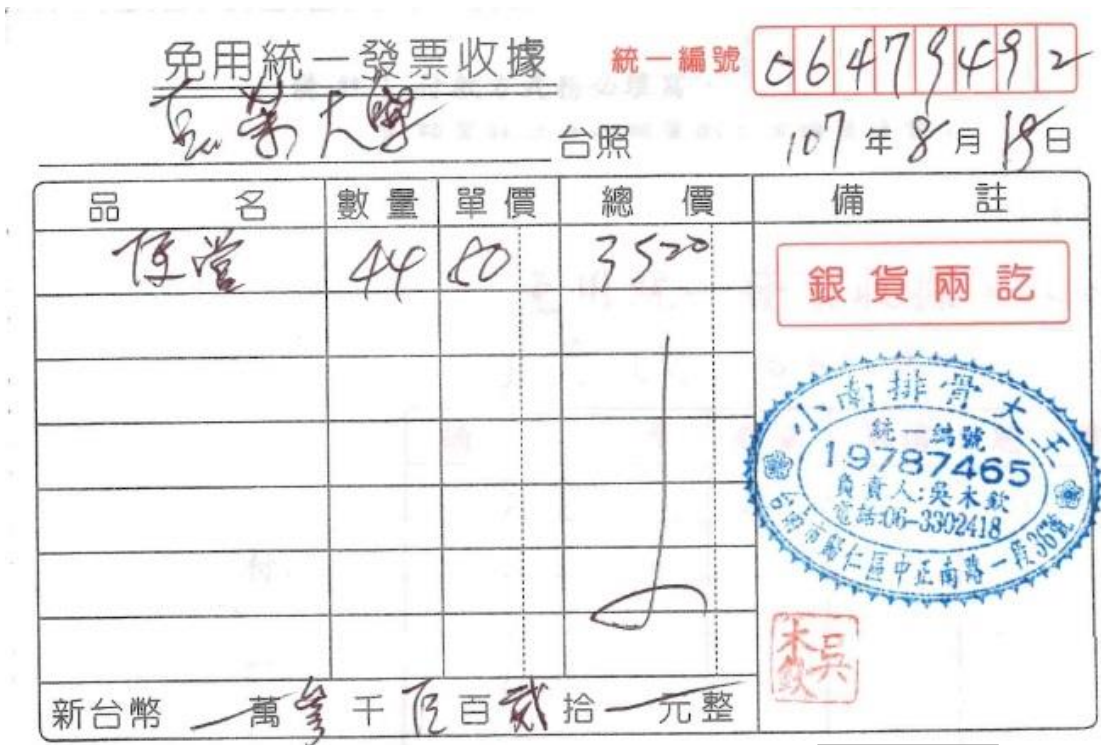 免用統一發票收據 統一編號 06479492
大學 台照 107年8月18日
品名 數量 單價 總價 備註
便當 44 80 3520
銀貨兩訖
小南排骨大王
統一編號
19787465
負責人:吳木欽
電話:06-3302418
台南市歸仁區中正南路一段36號
吳木欽
新台幣 萬參千伍百貳拾元整